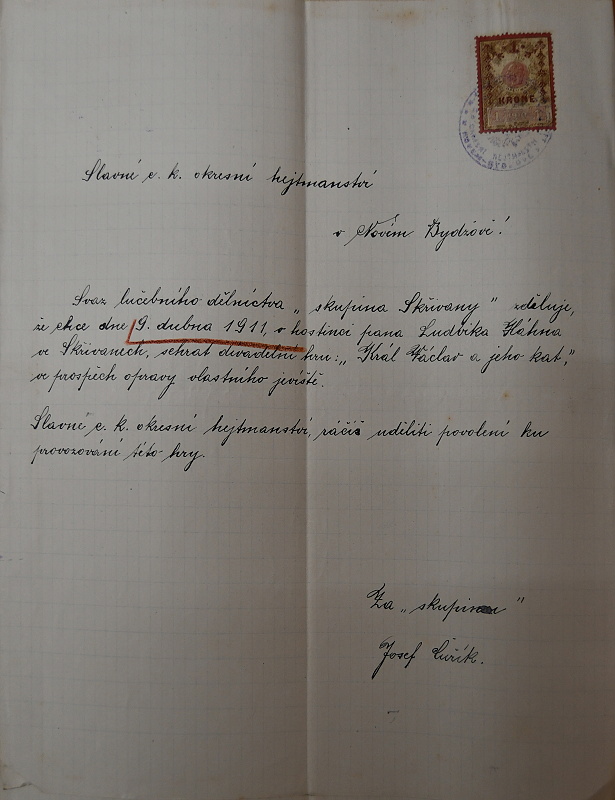 1
KRONE
Slavné c. k. okresní hejtmanství
v Novém Bydžově!
Svaz lučebního dělnictva „skupina Skřivany" zděluje,
že chce dne 9. dubna 1911, v hostinci pana Ludvíka Háhna
ve Skřivanech, sehrát divadelní hru: „Král Václav a jeho kat",
ve prospěch opravy vlastního jeviště.
Slavné c. k. okresní hejtmanství, ráčiš uděliti povolení ku
provozování této hry.
Za „skupinu"
Josef